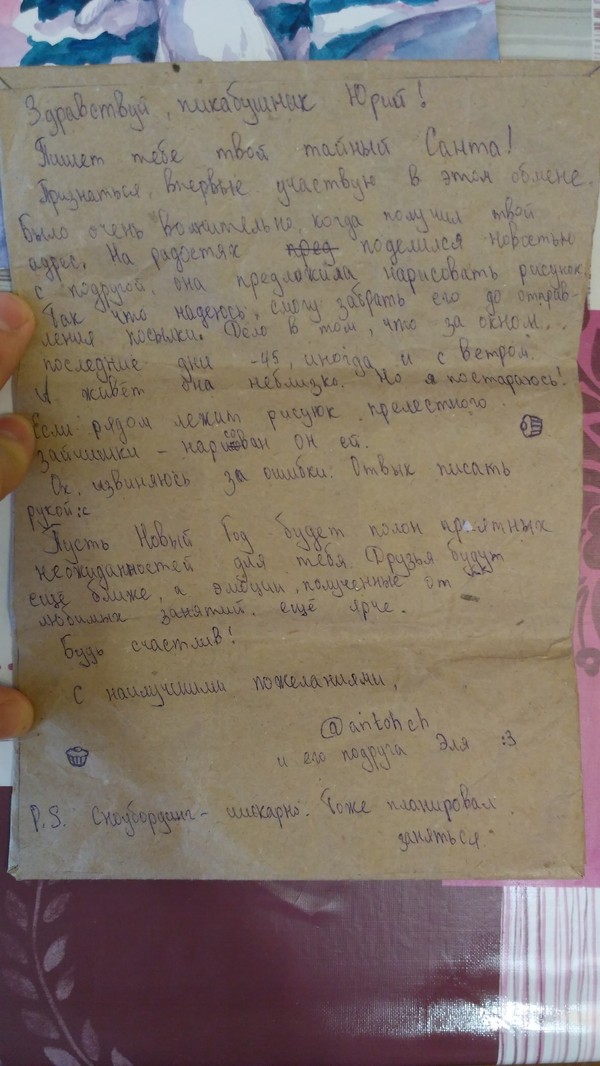 Здравствуй, пикабушник Юрий!
Пишет тебе твой тайный Санта!
Признаться, впервые участвую в этом обмене.
Было очень волнительно, когда получил твой
адрес. На радостях пред поделился новостью
с подругой, она предложила нарисовать рисунок.
Так что надеюсь, смогу забрать его до отправ-
ления посылки. Дело в том, что за окном...
последние дни -45, иногда и с ветром.
А живёт она неблизко. Но я постараюсь!
Если рядом лежит рисуюк прелестного
зайчишки - нарисован он ей.
Ох, извиняюсь за ошибки. Отвык писать
рукой:с
Пусть Новый Год будет полон приятных
неожиданностей для тебя. Друзья будут
ещё ближе, а эмоции, полученные от
любимых занятий, ещё ярче.
Будь счастлив!
С наилучшими пожеланиями,
@antohch
и его подруга Эля :3
P.S. Сноубординг - шикарно. Тоже планировал
заняться.